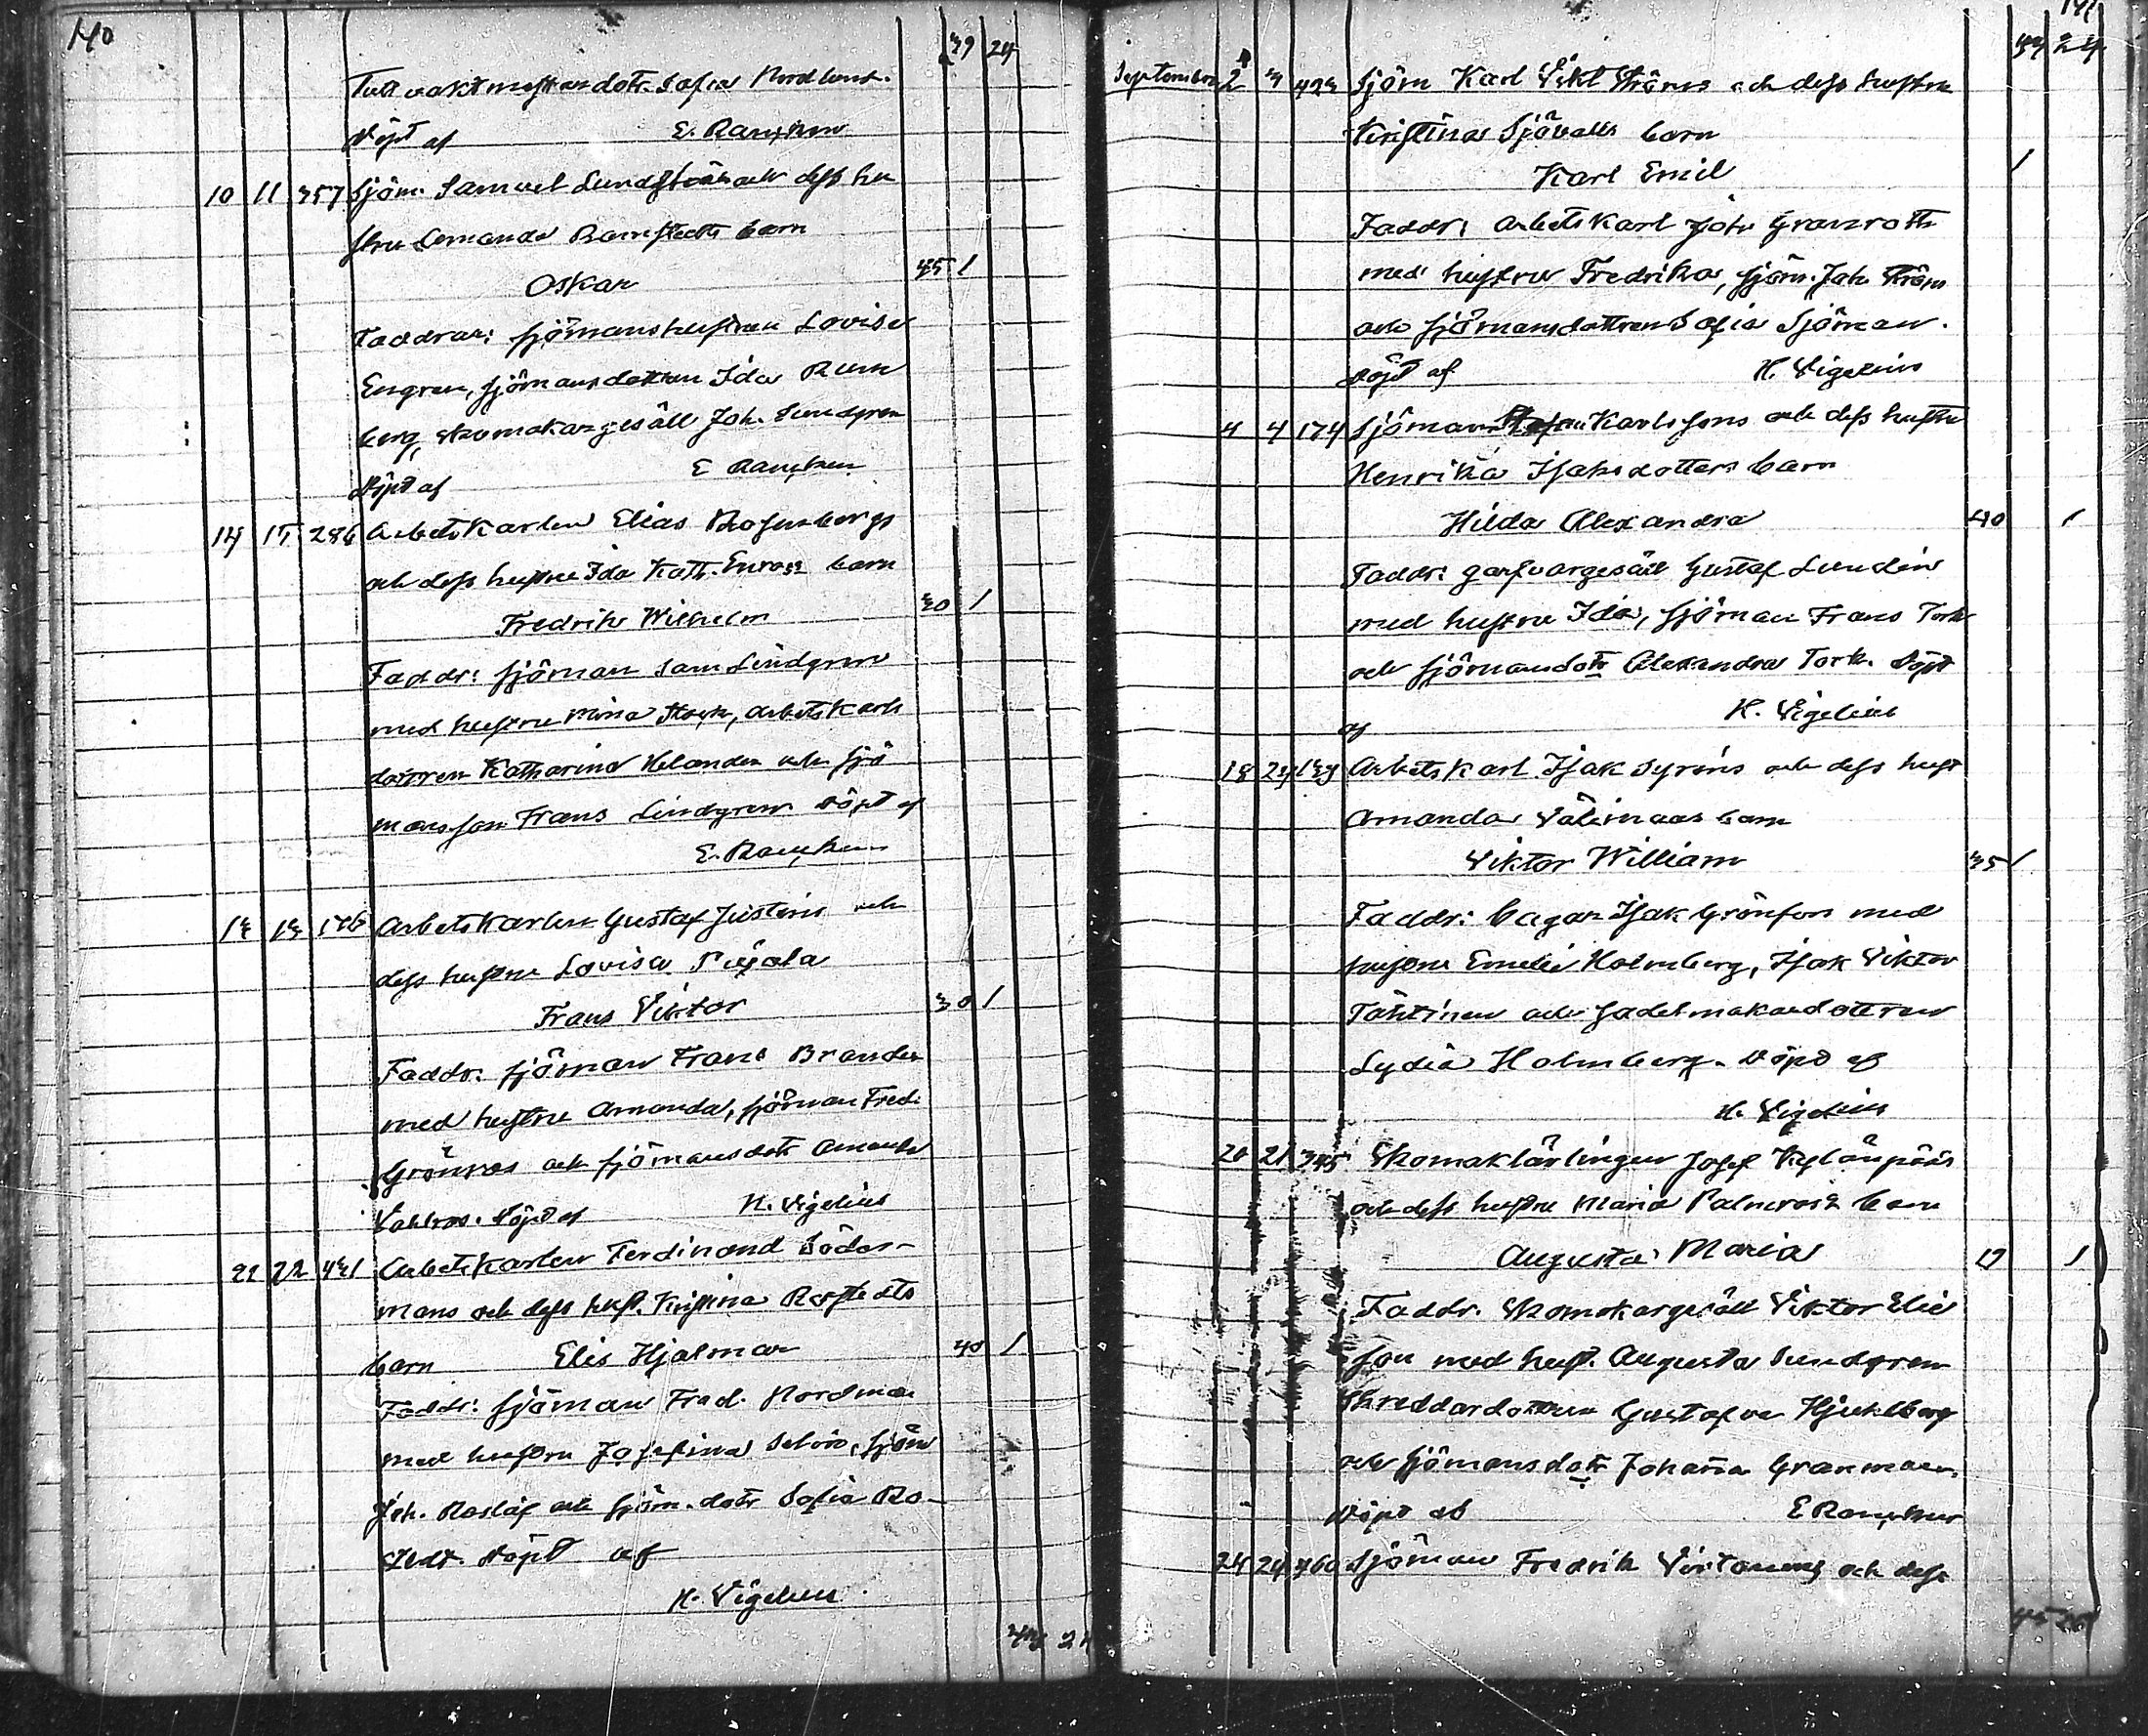 140
39 24
Tullvaktmästaredotr. Sofia Nordlund.
Döpt af E. Rancken
10 11 357 Sjöm. Samuel Lundströms och dess hu
stru Amanda Barnstedts barn
Oskar 45 1
Faddrar: sjömanshustrun Lovisa
Engren, sjömansdottren Ida Rum
berg, skomakaregesäll Joh. Lundgren
Döpt af E Rancken
14 15 286 Arbetskarlen Elias Rosenbergs
och dess hustru Ida Kath. Enross barn
Fredrik Wilhelm 30 1
Faddr: sjöman Sam Lindgren
med hustru Mina, arbetskarls
dottren Katharina Helander och sjö
mansson Frans Lindgren. Döpt af
E. Rancken
13 13 176 Arbetskarlen Gustaf Justins och
dess hustru Lovisa
Frans Viktor 30 1
Faddr. sjöman Frans Brander
med hustru Amanda, sjöman Fred.
Grönroos och sjömansdotr Amanda
Vahlroos. Döpt af H. Vigelius
21 22 431 Arbetskarlen Ferdinand Söder-
mans och dess hust. Kristina Rostedts
barn Elis Hjalmar 40 1
Faddr: sjöman Fred. Nordman
med hustru Josefina Selin, sjöm
Joh. Roslöf och sjöm.dotr Sofia Ro-
stedt. Döpt af
H. Vigelius
43 24
141
43 24
September 2 3 423 Sjöm Karl Vikt Ströms och dess hustru
Kristina Sjövalls barn
Karl Emil 1
Faddr: arbetskarl Joh Granroth
med hustru Fredrika, sjöm. Joh. Ström
och sjömansdottren Sofia Sjöman.
Döpt af H. Vigelius
4 4 174 Sjöman Karlssons och dess hustru
Henrika Isaksdotters barn
Hilda Alexandra 40 1
Faddr: garfvargesäll Gustaf Lundin
med hustru Ida, sjöman Frans Tork
och sjömansdotr Alexandra Tork. Döpt
af H. Vigelius
18 24 139 Arbetskarl Isak Syréns och dess hust
Amanda Välimaas barn
Viktor William 35 1
Faddr: bagar Isak Grönfors med
hustru Emelie Holmberg, Isak Viktor
Tähtinen och sadelmakaredottren
Lydia Holmberg. Döpt af
H. Vigelius
20 21 345 Skomaklärlingen Josef Kylänpääs
och dess hustru Maria Palmroos barn
Augusta Maria 1
Faddr. Skomakargesäll Viktor Elis
son med hust. Augusta Lundgren
Skreddardottren Gustafva Hjuhlberg
och sjömansdotr Johanna Granman.
Döpt af E Rancken
24 24 460 Sjöman Fredrik Virtanens och dess
45 26